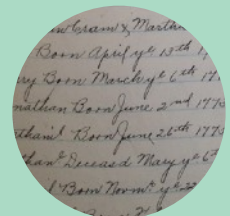 Cram & Martha
Boon April ye 13th
Boon March ye 6th 17
nathan Boon June 2nd 177
Boon June 26th 177
Deceased Mary ye 6
Boon Novmr ye 22